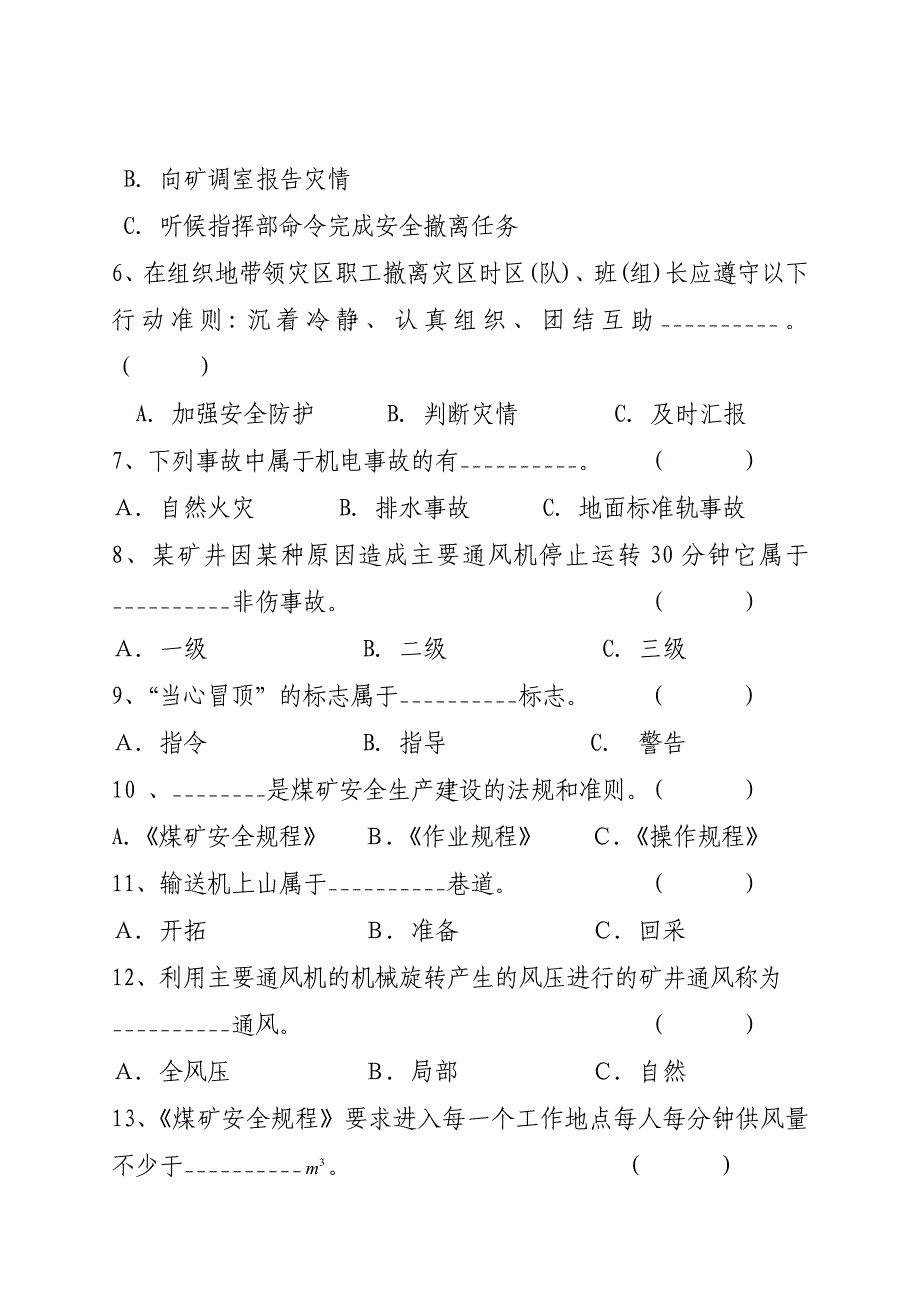 B. 向矿调室报告灾情
C. 听候指挥部命令完成安全撤离任务
6、在组织地带领灾区职工撤离灾区时区(队)、班(组)长应遵守以下
行动准则:沉着冷静、认真组织、团结互助__________。
(    )
A. 加强安全防护 B. 判断灾情 C. 及时汇报
7、下列事故中属于机电事故的有__________。 (    )
A. 自然火灾 B. 排水事故 C. 地面标准轨事故
8、某矿井因某种原因造成主要通风机停止运转30分钟它属于
__________非伤事故。 (    )
A. 一级 B. 二级 C. 三级
9、“当心冒顶”的标志属于__________标志。 (    )
A. 指令 B. 指导 C. 警告
10 、________是煤矿安全生产建设的法规和准则。 (    )
A.《煤矿安全规程》 B.《作业规程》 C.《操作规程》
11、输送机上山属于__________巷道。 (    )
A. 开拓 B. 准备 C. 回采
12、利用主要通风机的机械旋转产生的风压进行的矿井通风称为
__________通风。 (    )
A. 全风压 B. 局部 C. 自然
13、《煤矿安全规程》要求进入每一个工作地点每人每分钟供风量
不少于__________m³。 (    )